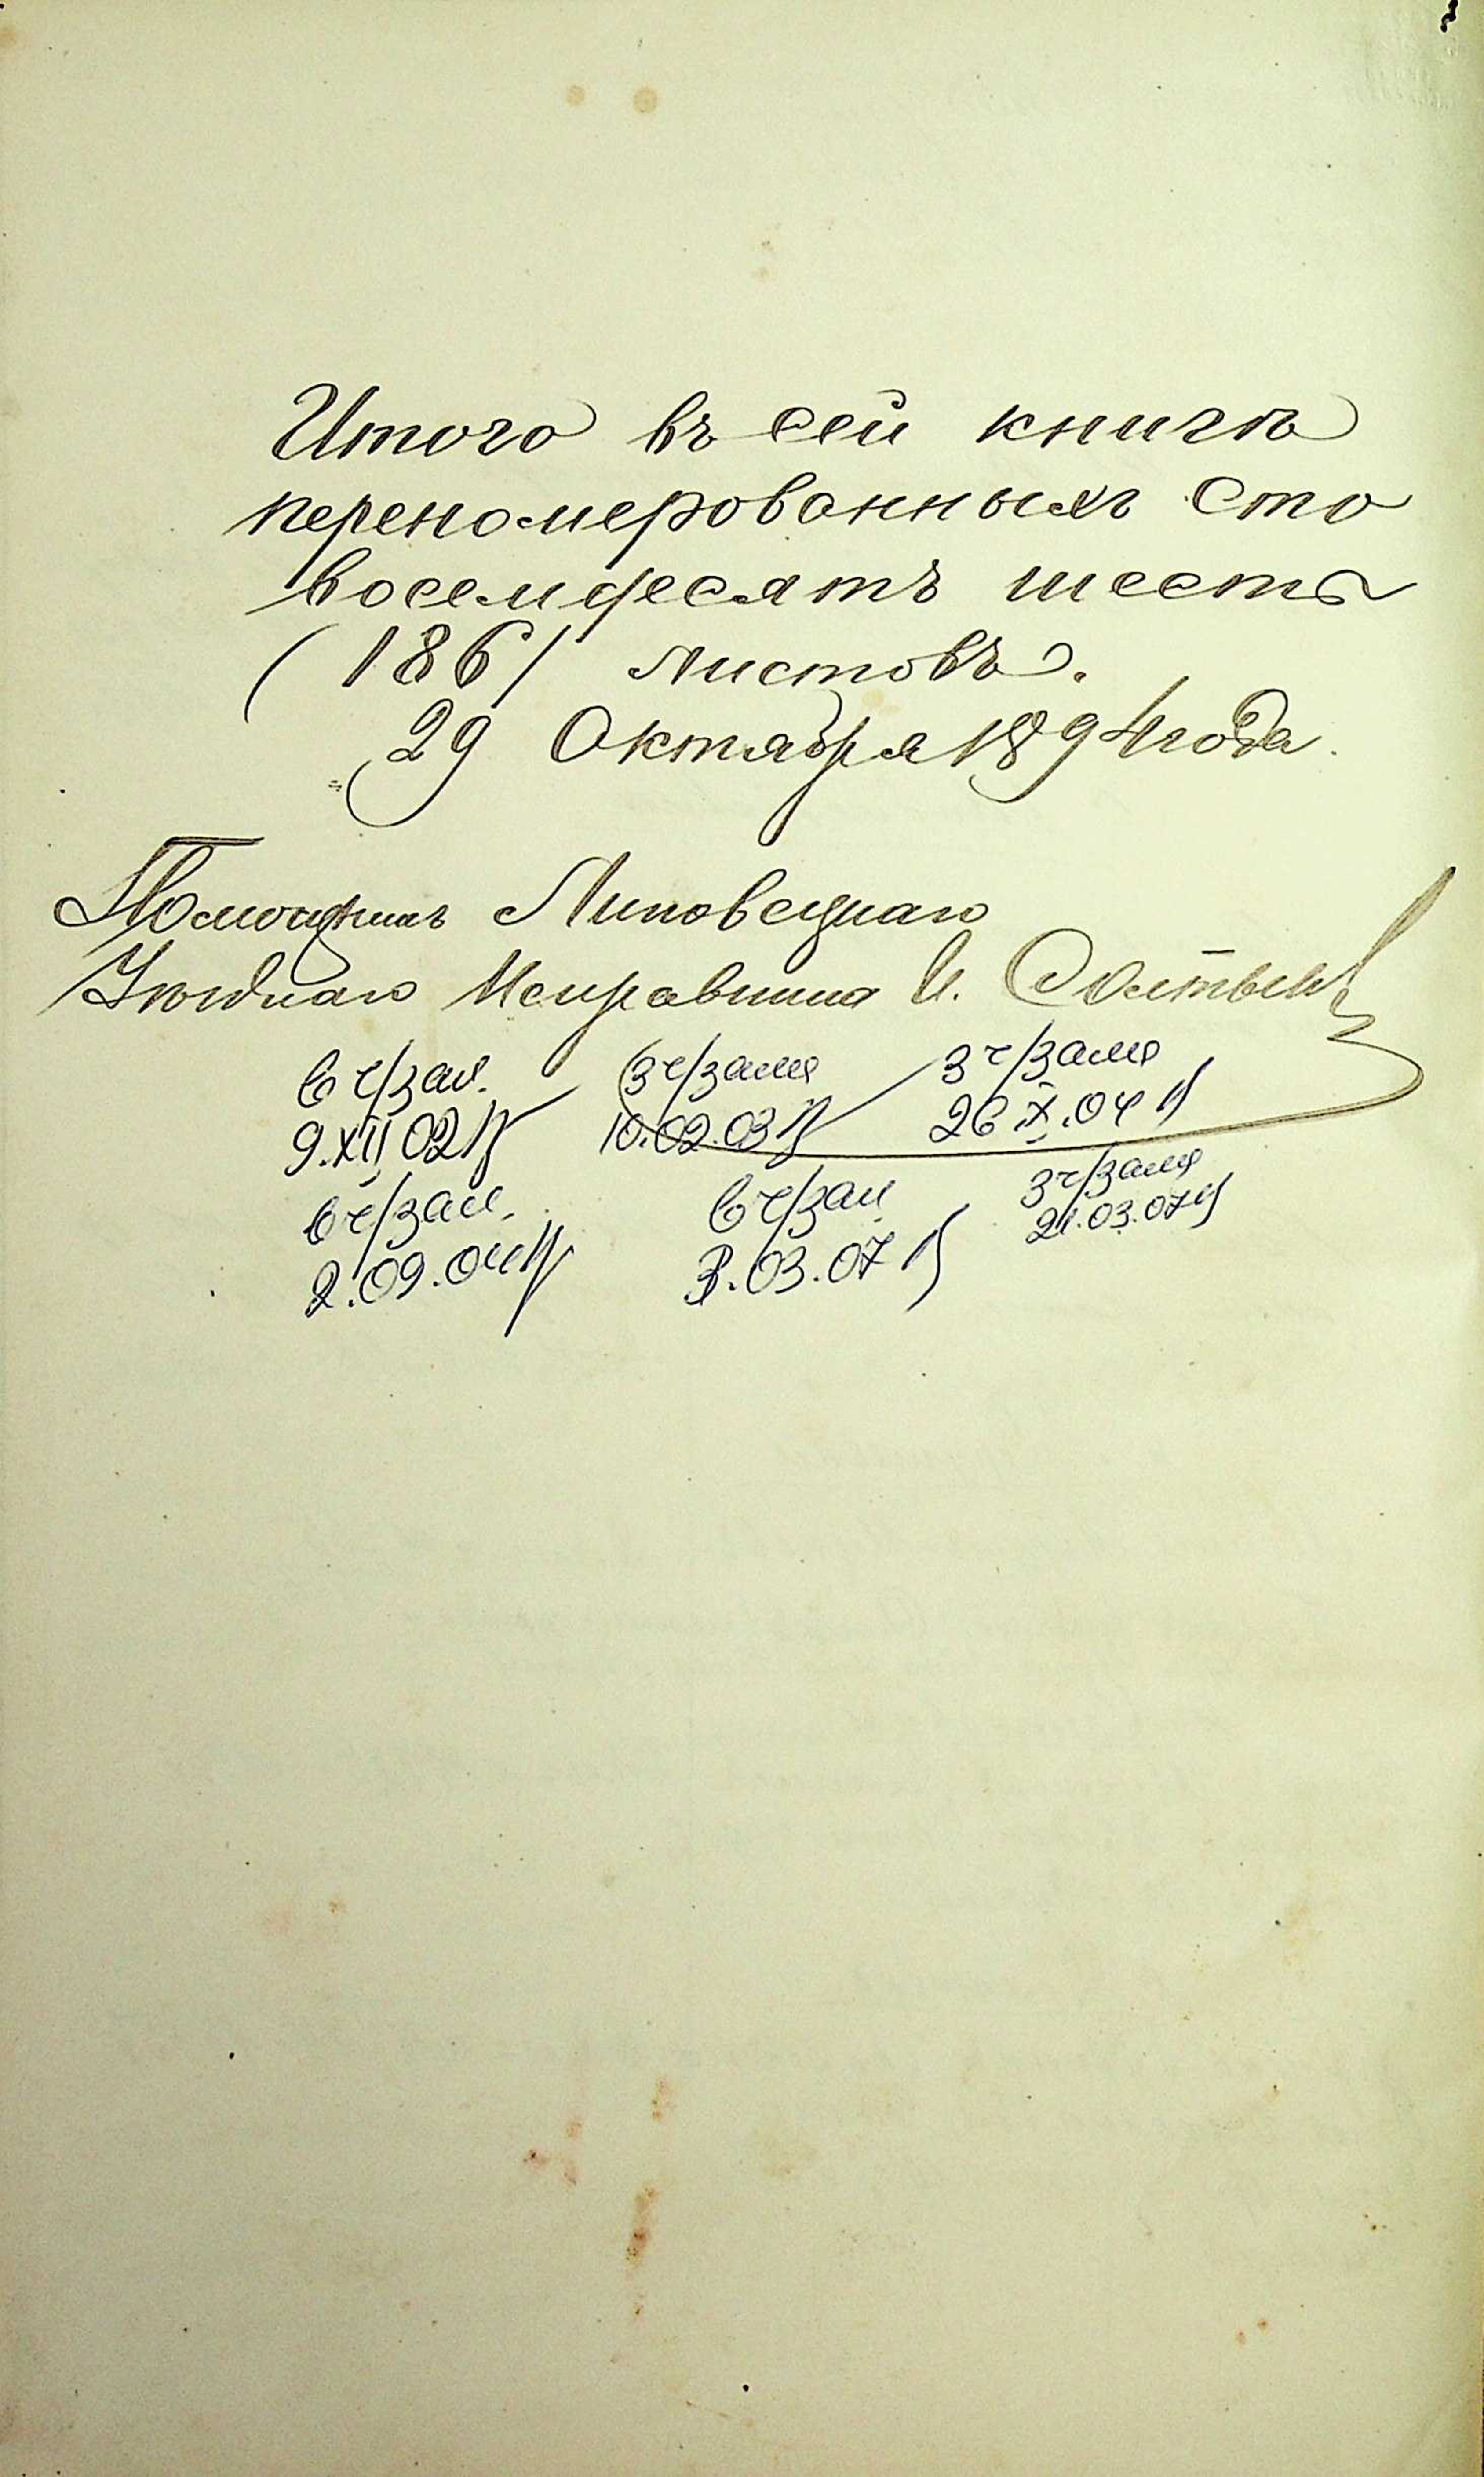 Итого въ сей книгѣ
переномерованныхъ сто
восемдесятъ шесть
(186/ листовъ.
29 Октября 1894 года.
Помощникъ Липовецкаго
Уѣзднаго Исправника И.
в ч/зал. з ч/залі з ч/залі
9.XII 02 10.02.03 26.X.04
в ч/зал. в ч/зал з ч/залі
2.09.04 3.03.07 21.03.07